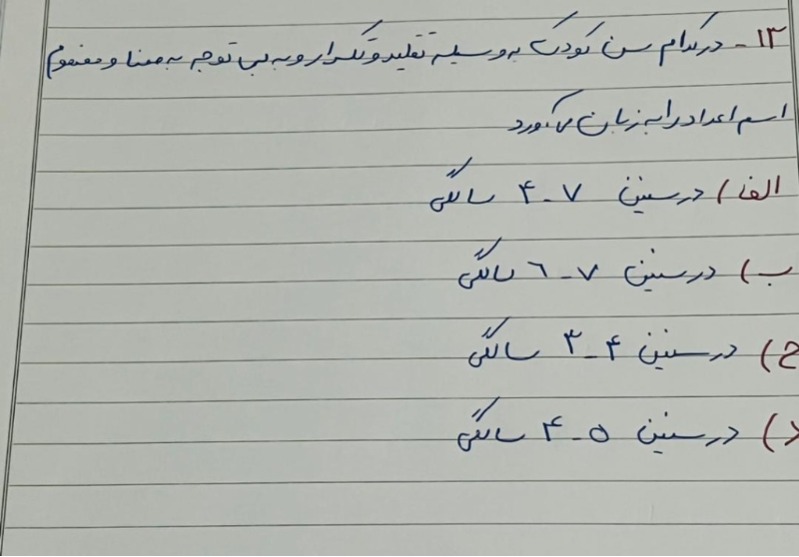 ۱۳ - در کدام سن کودک به وسیله تقلید و تکرار و به بی توجه به معنا و مفهوم
اسم اعداد را به زبان می آورد
الف) در سنین ۷-۴ سالگی
ب) در سنین ۷-۶ سالگی
ج) در سنین ۴-۳ سالگی
د) در سنین ۵-۴ سالگی